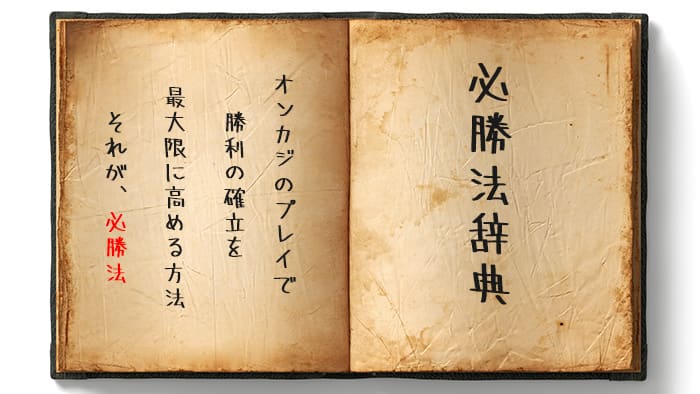 必勝法辞典
オンカジのプレイで
勝利の確立を
最大限に高める方法
それが、必勝法